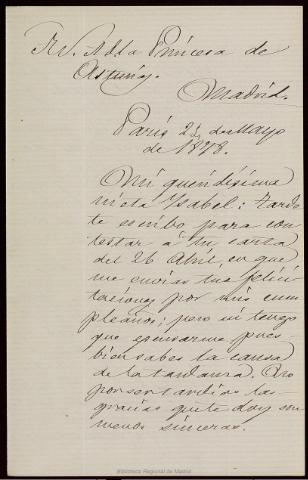 A la Princesa de
Asturias.
Madrid.
París 24 de Mayo
de 1878.
Mi queridísima
nieta Ysabel: Tarde
te escribo para con
testar á tu carta
del 26 Abril, en que
me envías tus felici
taciones por mis cum
pleaños; pero ni tengo
que escusarme pues
bien sabes la causa
de la tardanza. No
por ser tardías las
gracias que te doy son
menos sinceras.
Biblioteca Regional de Madrid